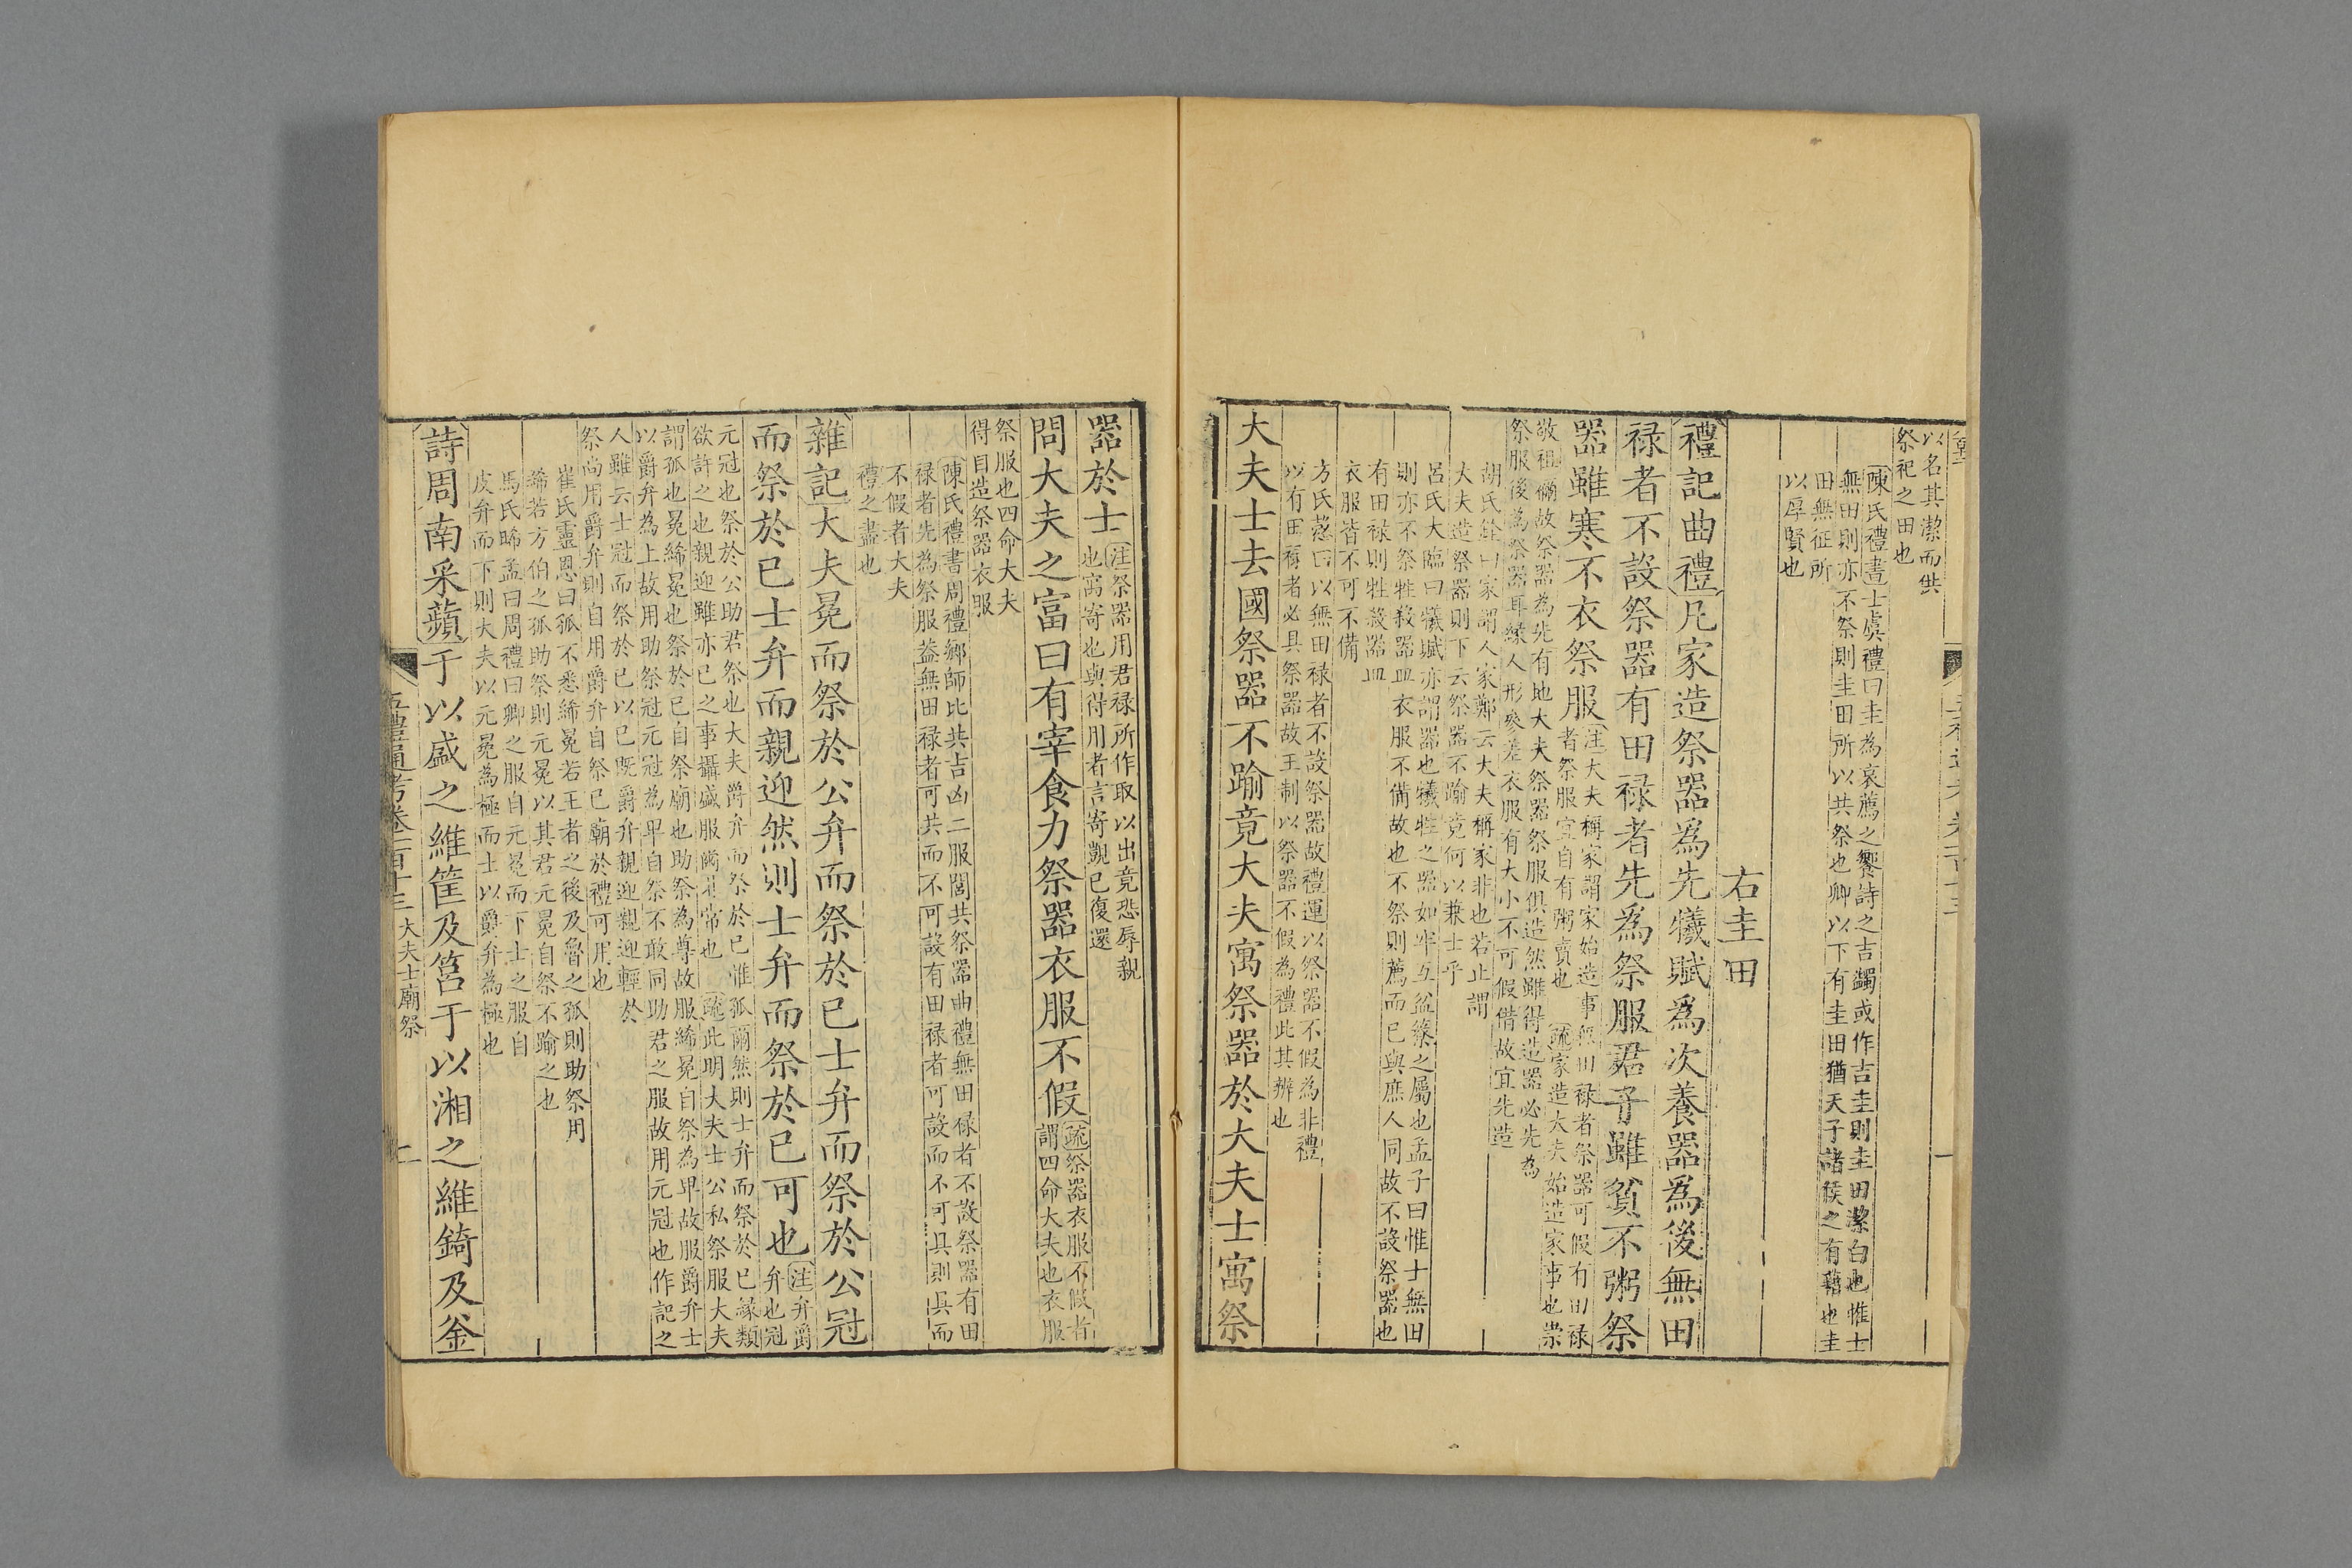 以名其潔而供
祭祀之田也
陳氏禮書士虞禮曰圭為哀薦之饗詩之吉蠲或作吉圭則圭田潔白也惟士
無田則亦不祭則圭田所以共祭也卿以下有圭田猶天子諸侯之有藉也圭
田無征所
以厚賢也
右圭田
禮記曲禮凡家造祭器爲先犧賦爲次養器爲後無田
禄者不設祭器有田禄者先爲祭服君子雖貧不粥祭
器雖寒不衣祭服
注大夫稱家謂家始造事無田禄者祭器可假有田禄
者祭服宜自有粥賣也
疏家造大夫始造家事也崇
敬祖禰故祭器為先有地大夫祭器祭服俱造然雖得造器必先為
祭服後為祭器耳緣人形參差衣服有大小不可假借故宜先造
胡氏銓曰家謂人家鄭云大夫稱家非也若止謂
大夫造祭器則下云祭器不踰竟何以兼士乎
呂氏大臨曰犧賦亦謂器也犧牲之器如牢互盆簝之屬也孟子曰惟士無田
則亦不祭牲殺器皿衣服不備故也不祭則薦而已與庶人同故不設祭器也
有田禄則牲殺器皿
衣服皆不可不備
方氏慤曰以無田禄者不設祭器故禮運以祭器不假為非禮
以有田禄者必具祭器故王制以祭器不假為禮此其辨也
大夫士去國祭器不踰竟大夫寓祭器於大夫士寓祭
器於士
注祭器用君禄所作取以出竟恐辱親
也寓寄也與得用者言寄覬已復還
問大夫之富曰有宰食力祭器衣服不假
疏祭器衣服不假者
謂四命大夫也衣服
祭服也四命大夫
得自造祭器衣服
陳氏禮書周禮鄉師比共吉凶二服閭共祭器曲禮無田禄者不設祭器有田
禄者先為祭服蓋無田禄者可共而不可設有田禄者可設而不可具則具而
不假者大夫
禮之盡也
雜記大夫冕而祭於公弁而祭於已士弁而祭於公冠
而祭於已士弁而親迎然則士弁而祭於已可也
注弁爵
弁也冠
元冠也祭於公助君祭也大夫爵弁而祭於已惟孤爾然則士弁而祭於已緣類
欲許之也親迎雖亦已之事攝盛服爾非常也
疏此明大夫士公私祭服大夫
謂孤也冕絺冕也祭於已自祭廟也助祭為尊故服絺冕自祭為卑故服爵弁士
以爵弁為上故用助祭冠元冠為卑自祭不敢同助君之服故用元冠也作記之
人雖云士冠而祭於已以已既爵弁親迎親迎輕於
祭尚用爵弁則自用爵弁自祭已廟於禮可用也
崔氏靈恩曰孤不悉絺冕若王者之後及魯之孤則助祭用
絺若方伯之孤助祭則元冕以其君元冕自祭不踰之也
馬氏晞孟曰周禮曰卿之服自元冕而下士之服自
皮弁而下則大夫以元冕為極而士以爵弁為極也
詩周南采蘋于以盛之維筐及筥于以湘之維錡及釜
五禮通考卷一百十三 大夫士廟祭